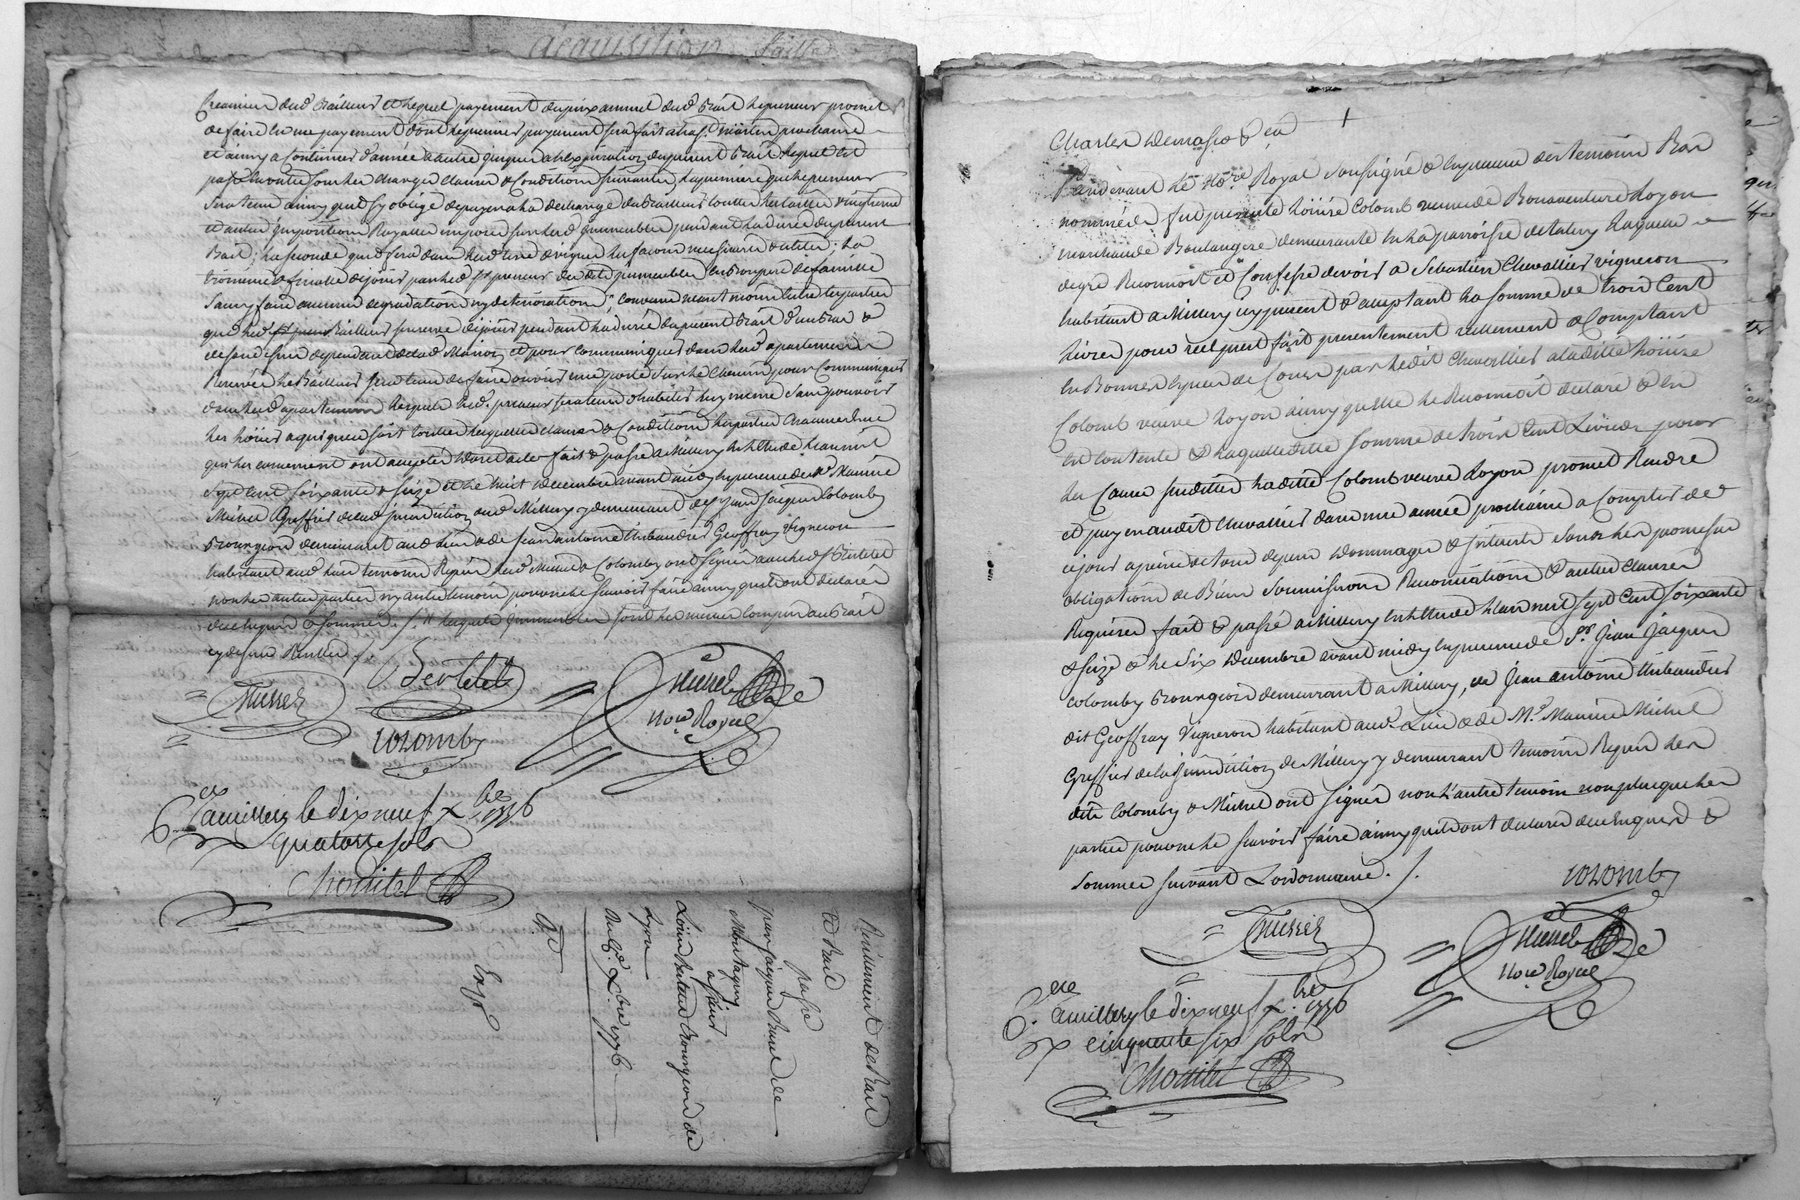 acquisition
Premier dud. Bailleur et lequel payement du prix annuel dud. bail le preneur promet
de faire en un payement dont le premier payement sera fait a la St. Martin prochaine
et ainsy a continuer d'année a autre jusques a l'expiration du present Bail lequel est
passé en outre sous les charges clauses & conditions suivantes la premiere que le preneur
sera tenu ainsy qu'il s'y oblige de payer a la décharge du Bailleur toutes les tailles vingtiemes
et autres impositions Royalles imposées sur led. immeuble pendant la durée du present
Bail; la seconde qu'il fera dans lesd. terre & vignes les façons necessaires & utiles; la
troisieme & finalle de jouir par led. preneur desdits immeubles en bon pere de famille
sans y faire aucune degradation ny deterioration; convenu neantmoins entre les parties
que led. Bailleur se reserve de jouir pendant la durée du present Bail d'un bas &
dependant de lad. Maison et pour communiquer dans led. apartement
Reservé le Bailleur sera tenu de faire ouvrir une porte sur le chemin pour communiquer
dans led. apartement lequel led. preneur sera tenu d'habiter luy meme sans pouvoir
les loüer a qui que ce soit toutes lesquelles clauses & conditions les parties chacune en ce
qui les concernent ont acceptés dont acte fait & passé a Millery en l'étude l'an mil
sept cent soixante & seize et le huit decembre avant midy en presence de Me. Maurice
Michel Greffier de lad. jurisdiction dud. Millery y demeurant de Sr. Jean Jacques Colomby
Bourgeois demeurant aud. lieu & de Jean antoine Thibaudier Geoffray Vigneron
habitant aud. lieu temoins Requis lesd. Michel & Colomby ont signés avec led. Sr. Bertelet
non les autres parties ny autre temoin pour ne le sçavoir faire ainsy qu'ils ont déclarés
de ce Enquis & sommés ./. lesquels immeubles sont les memes compris au Bail
cy dessus Enoncé ./.
Bertelet
Michel
colomby
Michel
Nore. Royal
Cle. a millery le dix neuf Xbre 1776
Rx quatorze sols
Chouitel
Resiliment de Bail
& Bail
passé
par Jacques
Montagny
a Sieur
Bourgeois de
Lyon
du 8e. Xbre 1776
Exp
Pardevant le Nore. Royal soussigné & en presence des temoins Bas
nommés fut presente loüise Colomb veuve de Bonaventure Loyon
marchande Boulangere demeurante en la parroisse de Talary laquelle
de gré Reconnoit et Confesse devoir a Sebastien Chevallier vigneron
habitant a Millery cy present & acceptant la somme de trois cent
livres pour reel prest fait presentement reellement & comptant
en Bonnes Especes de Cours par ledit Chevallier a laditte loüise
Colomb veuve Loyon ainsy qu'elle le Reconnoit declare & en
est contente & laquelleditte somme de trois cent Livres pour
les causes susdittes laditte Colomb veuve Loyon promet Rendre
et payer audit Chevallier dans une année prochaine a compter de ce
jour a peine de tous depens dommages & interets sous les promesses
obligations de Biens soumissions Renonciations & autres clauses
Requises fait & passé a Millery en l'étude l'an mil sept cent soixante
& seize & le six Decembre avant midy en presence de Sr. Jean Jacques
Colomby Bourgeois demeurant a Millery, de Jean antoine Thibaudier
dit Geoffray Vigneron habitant aud. Lieu & de Me. Maurice Michel
Greffier de la Jurisdiction de Millery y demeurant temoins Requis lesd
dits Colomby & Michel ont signés non l'autre temoin non plus que les
parties pour ne le sçavoir faire ainsy qu'ils ont declaré de ce Enquis &
sommés suivant L'ordonnance ./.
colomby
Michel
Michel
Nore. Royal
Cle. a millery le dix neuf Xbre 1776
Rx cinquante six sols
Chouitel